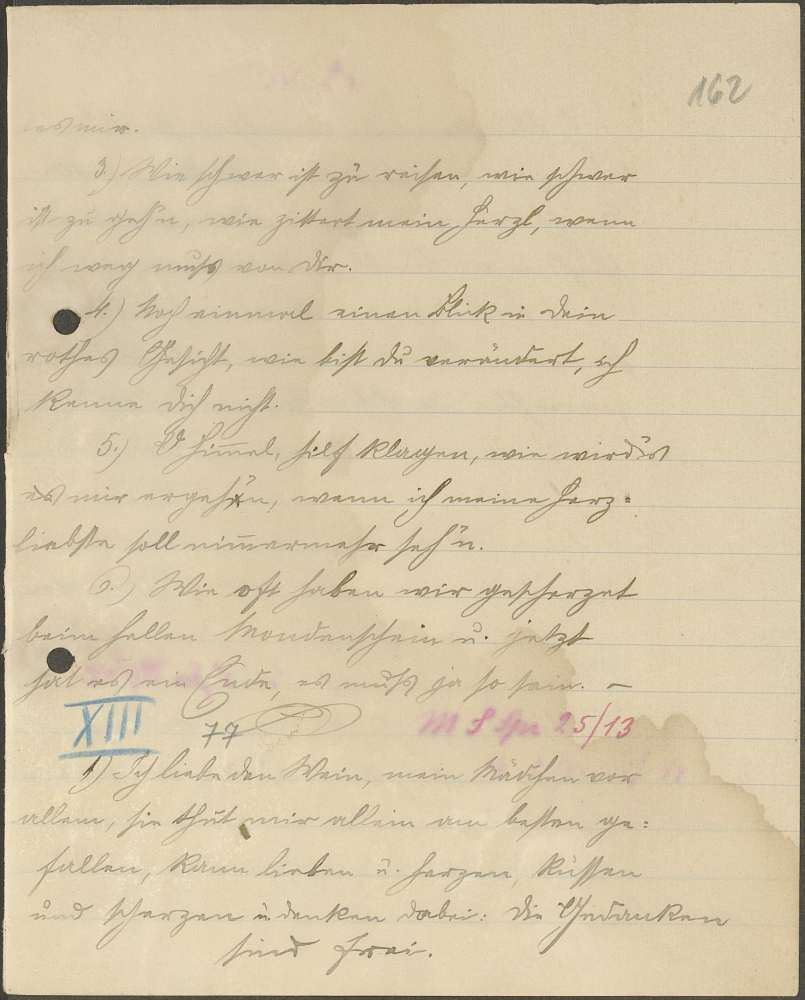 162
es mir.
3.) Wie schwer ist zu reisen, wie schwer
ist zu geh'n, wie zittert mein Herzl, wenn
ich weg muß von dir.
4.) Noch einmal einen Blick in dein
rothes Gesicht, wie bist du verändert, ich
kenne dich nicht.
5.) O Himmel, hilf klagen, wie wird's
es mir ergeh'n, wenn ich meine Herz=
liebste soll nimmermehr seh'n.
6.) Wie oft haben wir gescherzet
beim hellen Mondenschein u. jetzt
hat es ein Ende, es muß ja so sein. –
XIII 77
25/13
1.) Ich liebe den Wein, mein Mädchen vor
allem, sie thut mir allein am besten ge=
fallen, kann lieben u. herzen, küssen
und scherzen u. denken dabei: die Gedanken
sind frei.